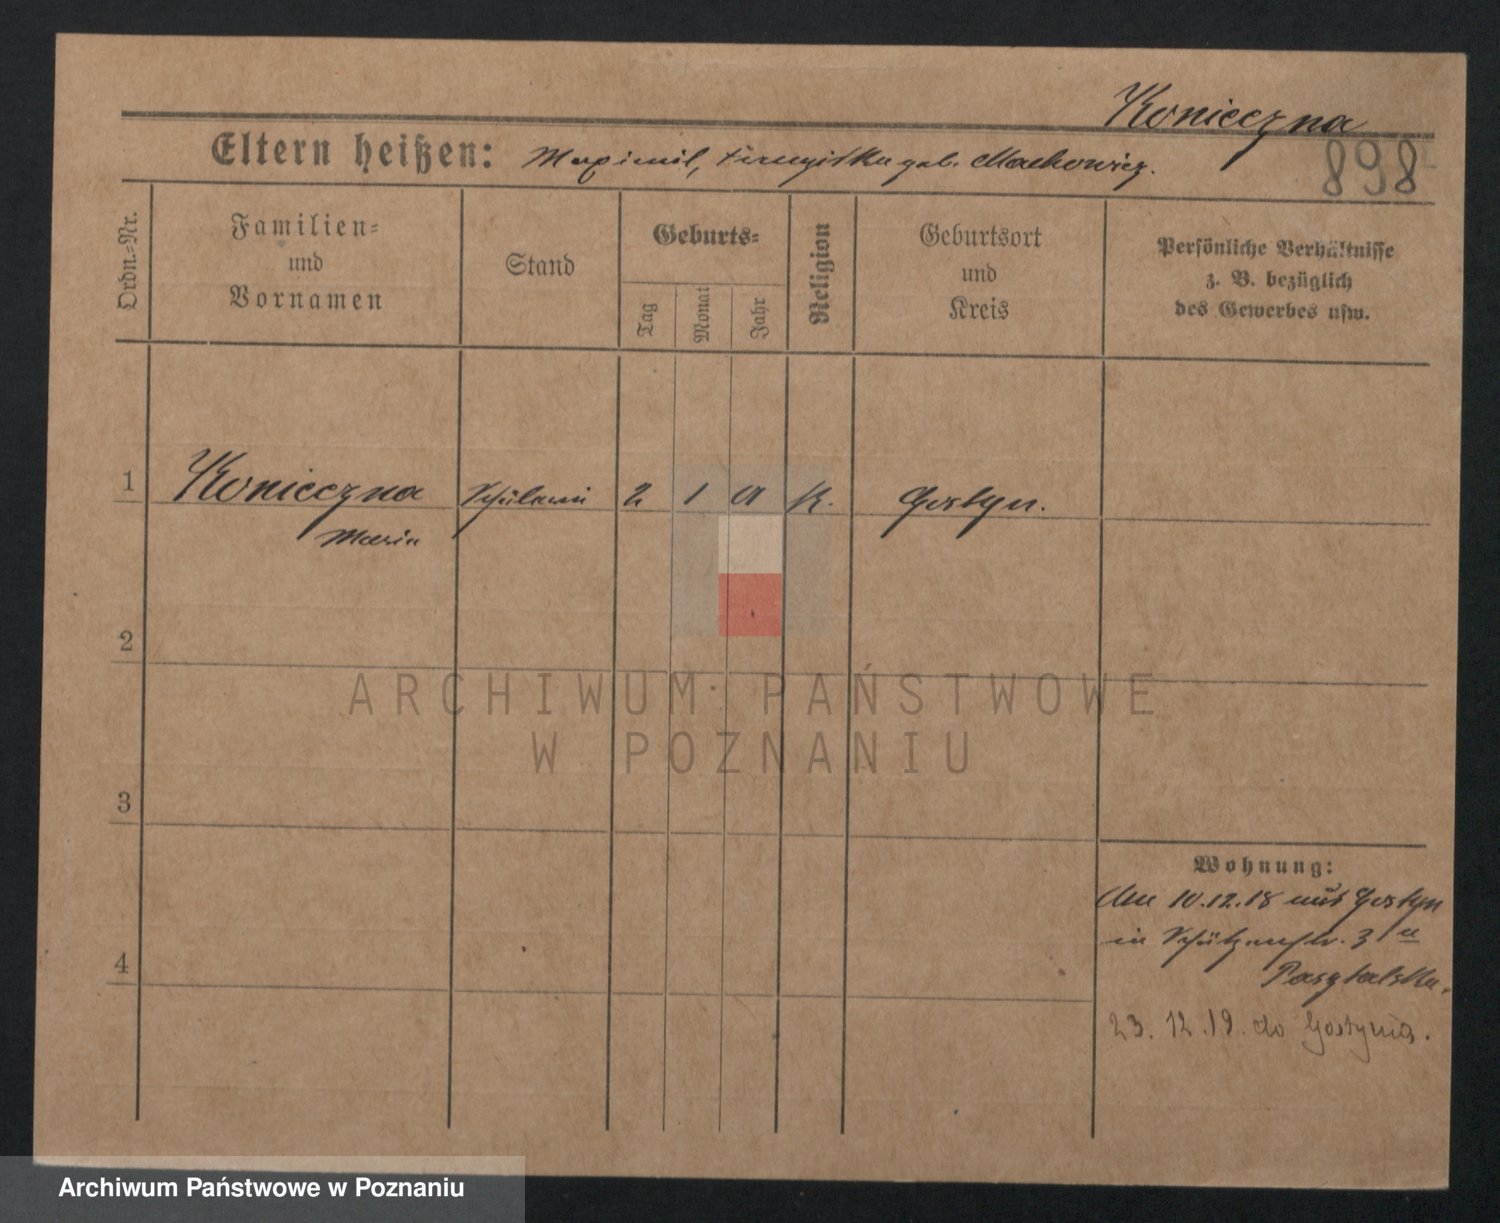 Konieczna
898
Eltern heißen: Maximil, Franziska geb. Machowicz.
Ordn.-Nr.
Familien-
und
Vornamen
Stand
Geburts-
Tag
Monat
Jahr
Religion
Geburtsort
und
Kreis
Persönliche Verhältnisse
z. B. bezüglich
des Gewerbes usw.
1 Konieczna Schülerin 2 1 01 K. Gostyn.
Maria
2
3
4
Wohnung:
Am 10.12.18 aus Gostyn
in Schützenstr. 3
23. 12. 19. do Gostynia.
ARCHIWUM PAŃSTWOWE
W POZNANIU
Archiwum Państwowe w Poznaniu